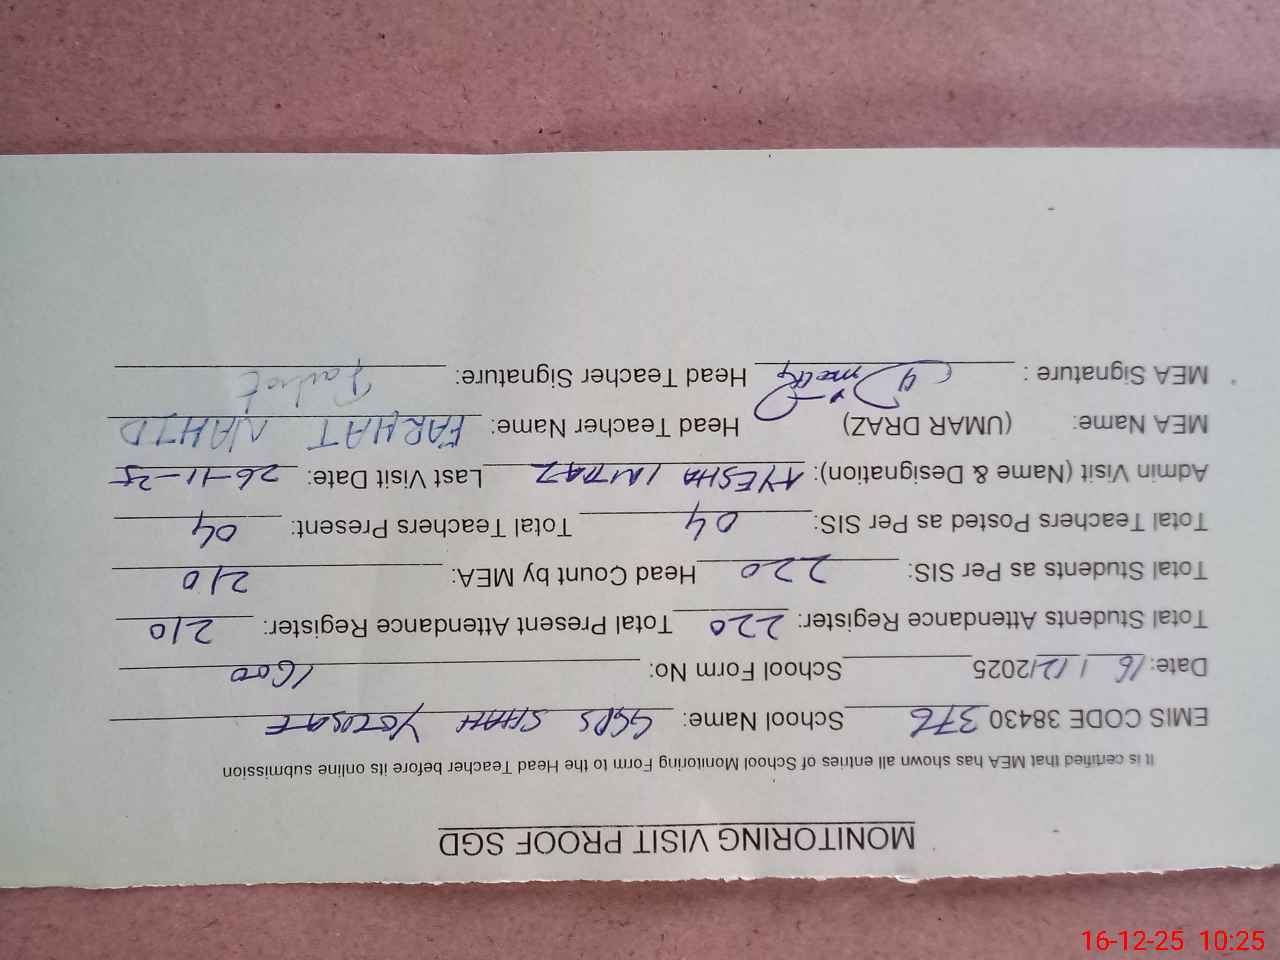 MONITORING VISIT PROOF SGD
It is certified that MEA has shown all entries of School Monitoring Form to the Head Teacher before its online submission
EMIS CODE 38430 376 School Name: GGPS SHAH YOUSAF
Date: 16/12/2025 School Form No: 1600
Total Students Attendance Register: 220 Total Present Attendance Register: 210
Total Students as Per SIS: 220 Head Count by MEA: 210
Total Teachers Posted as Per SIS: 04 Total Teachers Present: 04
Admin Visit (Name & Designation): AYESHA IMTIAZ Last Visit Date: 26-11-25
MEA Name: (UMAR DRAZ) Head Teacher Name: FARHAT NAHID
MEA Signature : Head Teacher Signature: Farhat
16-12-25 10:25